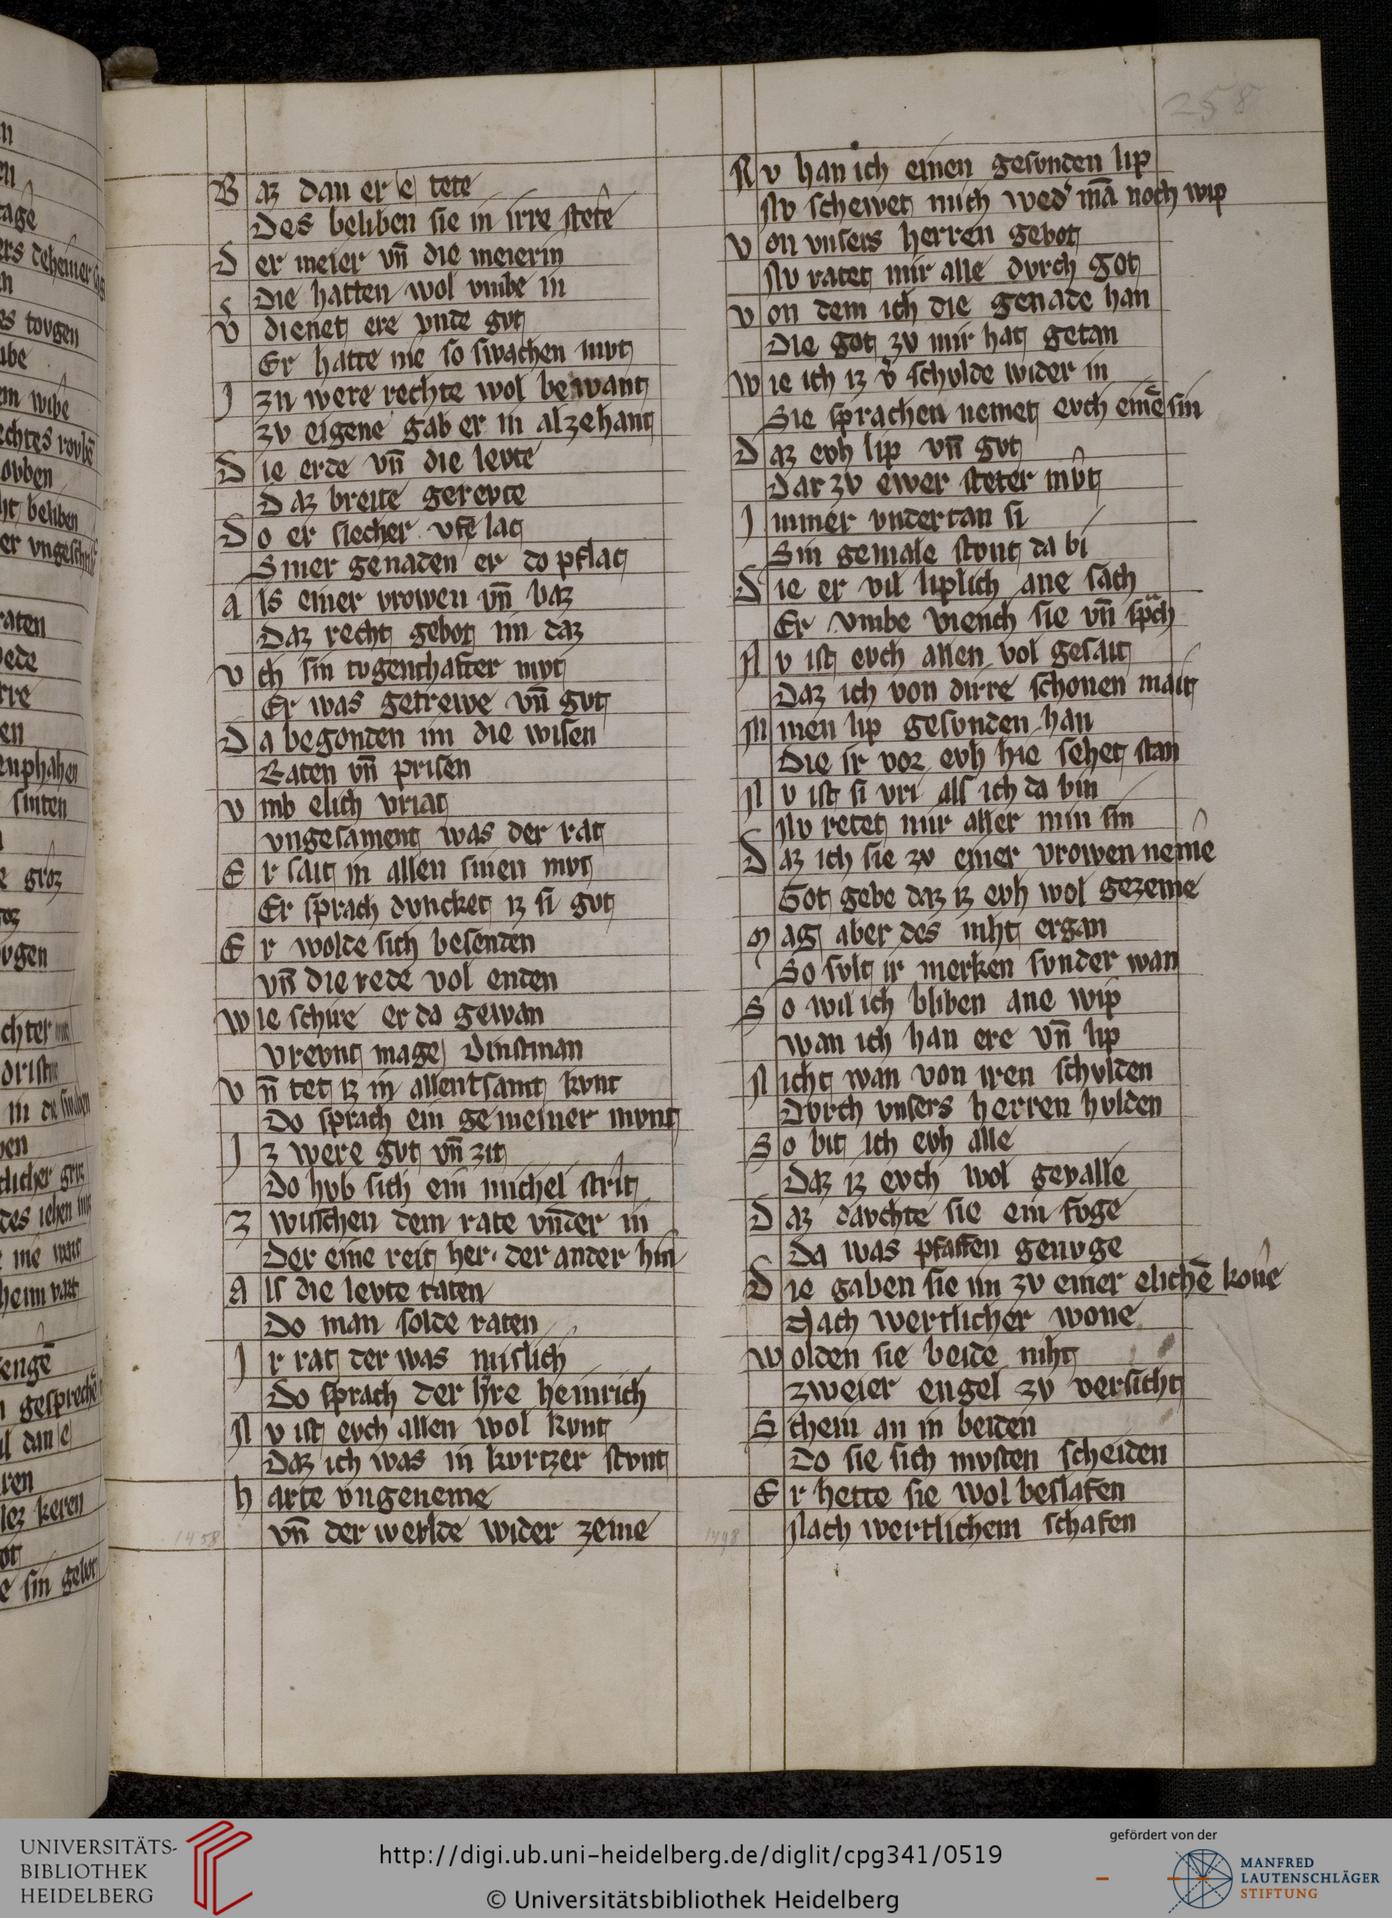 258
Baz dan er e tete
Des beliben sie in irre stete
Der meier vn̄ die meierin
Die hatten wol vmbe in
Vͦ dienet ere vnde gvt
Er hatte nie so swachen mvt
Jzn were rechte wol bewant
zv eigene gab er in alzehant
Die erde vn̄ die levte
Daz breite gerevte
Do er siecher vfe lac
Siner genaden er do pflac
Als einer vrowen vn̄ baz
Daz recht gebot im daz
Vch sin tvgenthafter mvt
Er was getrewe vn̄ gvt
Da begonden im die wisen
Raten vn̄ prisen
Vmb elich vriat
vngesament was der rat
Er sait in allen sinen mvt
Er sprach dvncket iz si gvt
Er wolde sich besenden
vn̄ die rede vol enden
Wie schire er da gewan
vrevnt mage dinstman
Vn̄ tet iz in allentsamt kvnt
Do sprach ein gemeiner mvnt
Jz were gvt vn̄ zit
Do hvb sich ein michel strit
Zwuschen dem rate vnder in
Der eine reit her· der ander hin
Als die levte taten
Do man solde raten
Jr rat der was mislich
Do sprach der h͛re heinrich
Nv ist evch allen wol kvnt
Daz ich was in kvrtzer stvnt
Harte vngeneme
vn̄ der werlde wider zeme
1458
Nv han ich einen gesvnden lip
Nv schewet mich wed͛ mā noch wip
Von vnsers herren gebot
Nv ratet mir alle dvrch got
Von dem ich die genade han
Die got zv mir hat getan
Wie ich iz v͛schvlde wider in
Sie sprachen nemet evch einē sin
Daz evh lip vn̄ gvt
Dar zv ewer steter mvt
Jmmer vndertan si
Sin gemale stvnt da bi
Die er vil liplich ane sach
Er vmbe viench sie vn̄ sprach
Nv ist evch allen vol gesait
Daz ich von dirre schonen mait
Minen lip gesvnden han
Die ir vor evh hie sehet stan
Nv ist si vri als ich da bin
Nv retet mir aller min sin
Daz ich sie zv einer vrowen neme
Got gebe daz iz evh wol gezeme
Mag aber des niht ergan
So svlt ir merken svnder wan
So wil ich bliben ane wip
Wan ich han ere vn̄ lip
Nicht wan von iren schvlden
Dvrch vnsers herren hvlden
So bit ich evh alle
Daz iz evch wol gevalle
Daz davchte sie ein fvge
Da was pfaffen genvge
Die gaben sie im zv einer elichē kone
Nach wertlicher wone
Wolden sie beide niht
zweier engel zv versicht
Schein an in beiden
Do sie sich mvsten scheiden
Er hette sie wol beslafen
Nach wertlichem schafen
1498
UNIVERSITÄTS-
BIBLIOTHEK
HEIDELBERG
http://digi.ub.uni-heidelberg.de/diglit/cpg341/0519
© Universitätsbibliothek Heidelberg
gefördert von der
MANFRED
LAUTENSCHLÄGER
STIFTUNG